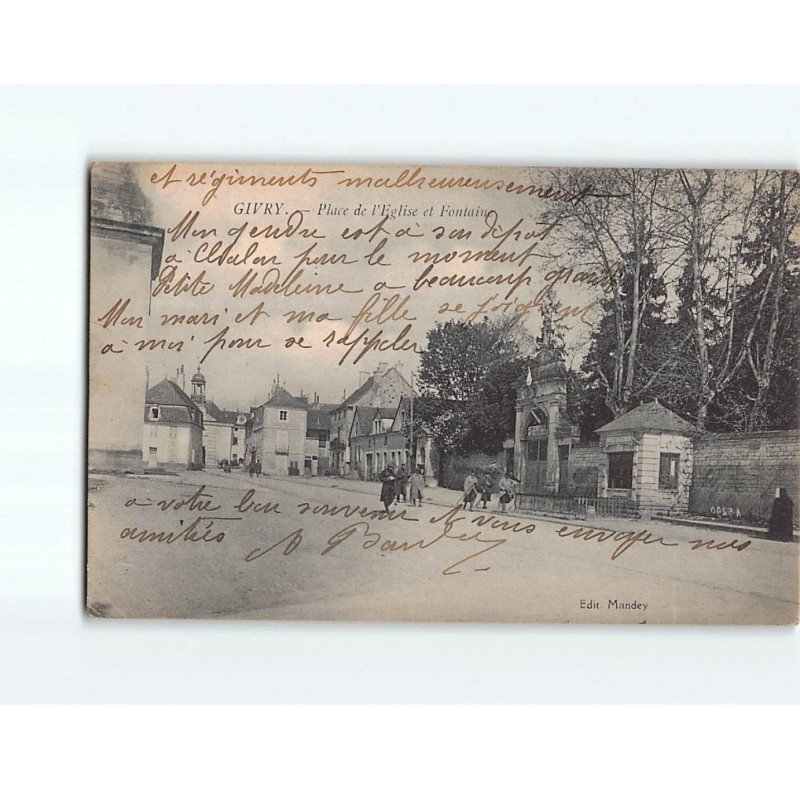 et régiments malheureusement
GIVRY. - Place de l'Eglise et Fontaine
Mon gendre est à son dépôt
à Chalon pour le moment
Petite Madeleine a beaucoup grandi
Mon mari et ma fille se joignent
à moi pour se rappeler
à votre bon souvenir et vous envoyer nos
amitiés
Edit. Mandey